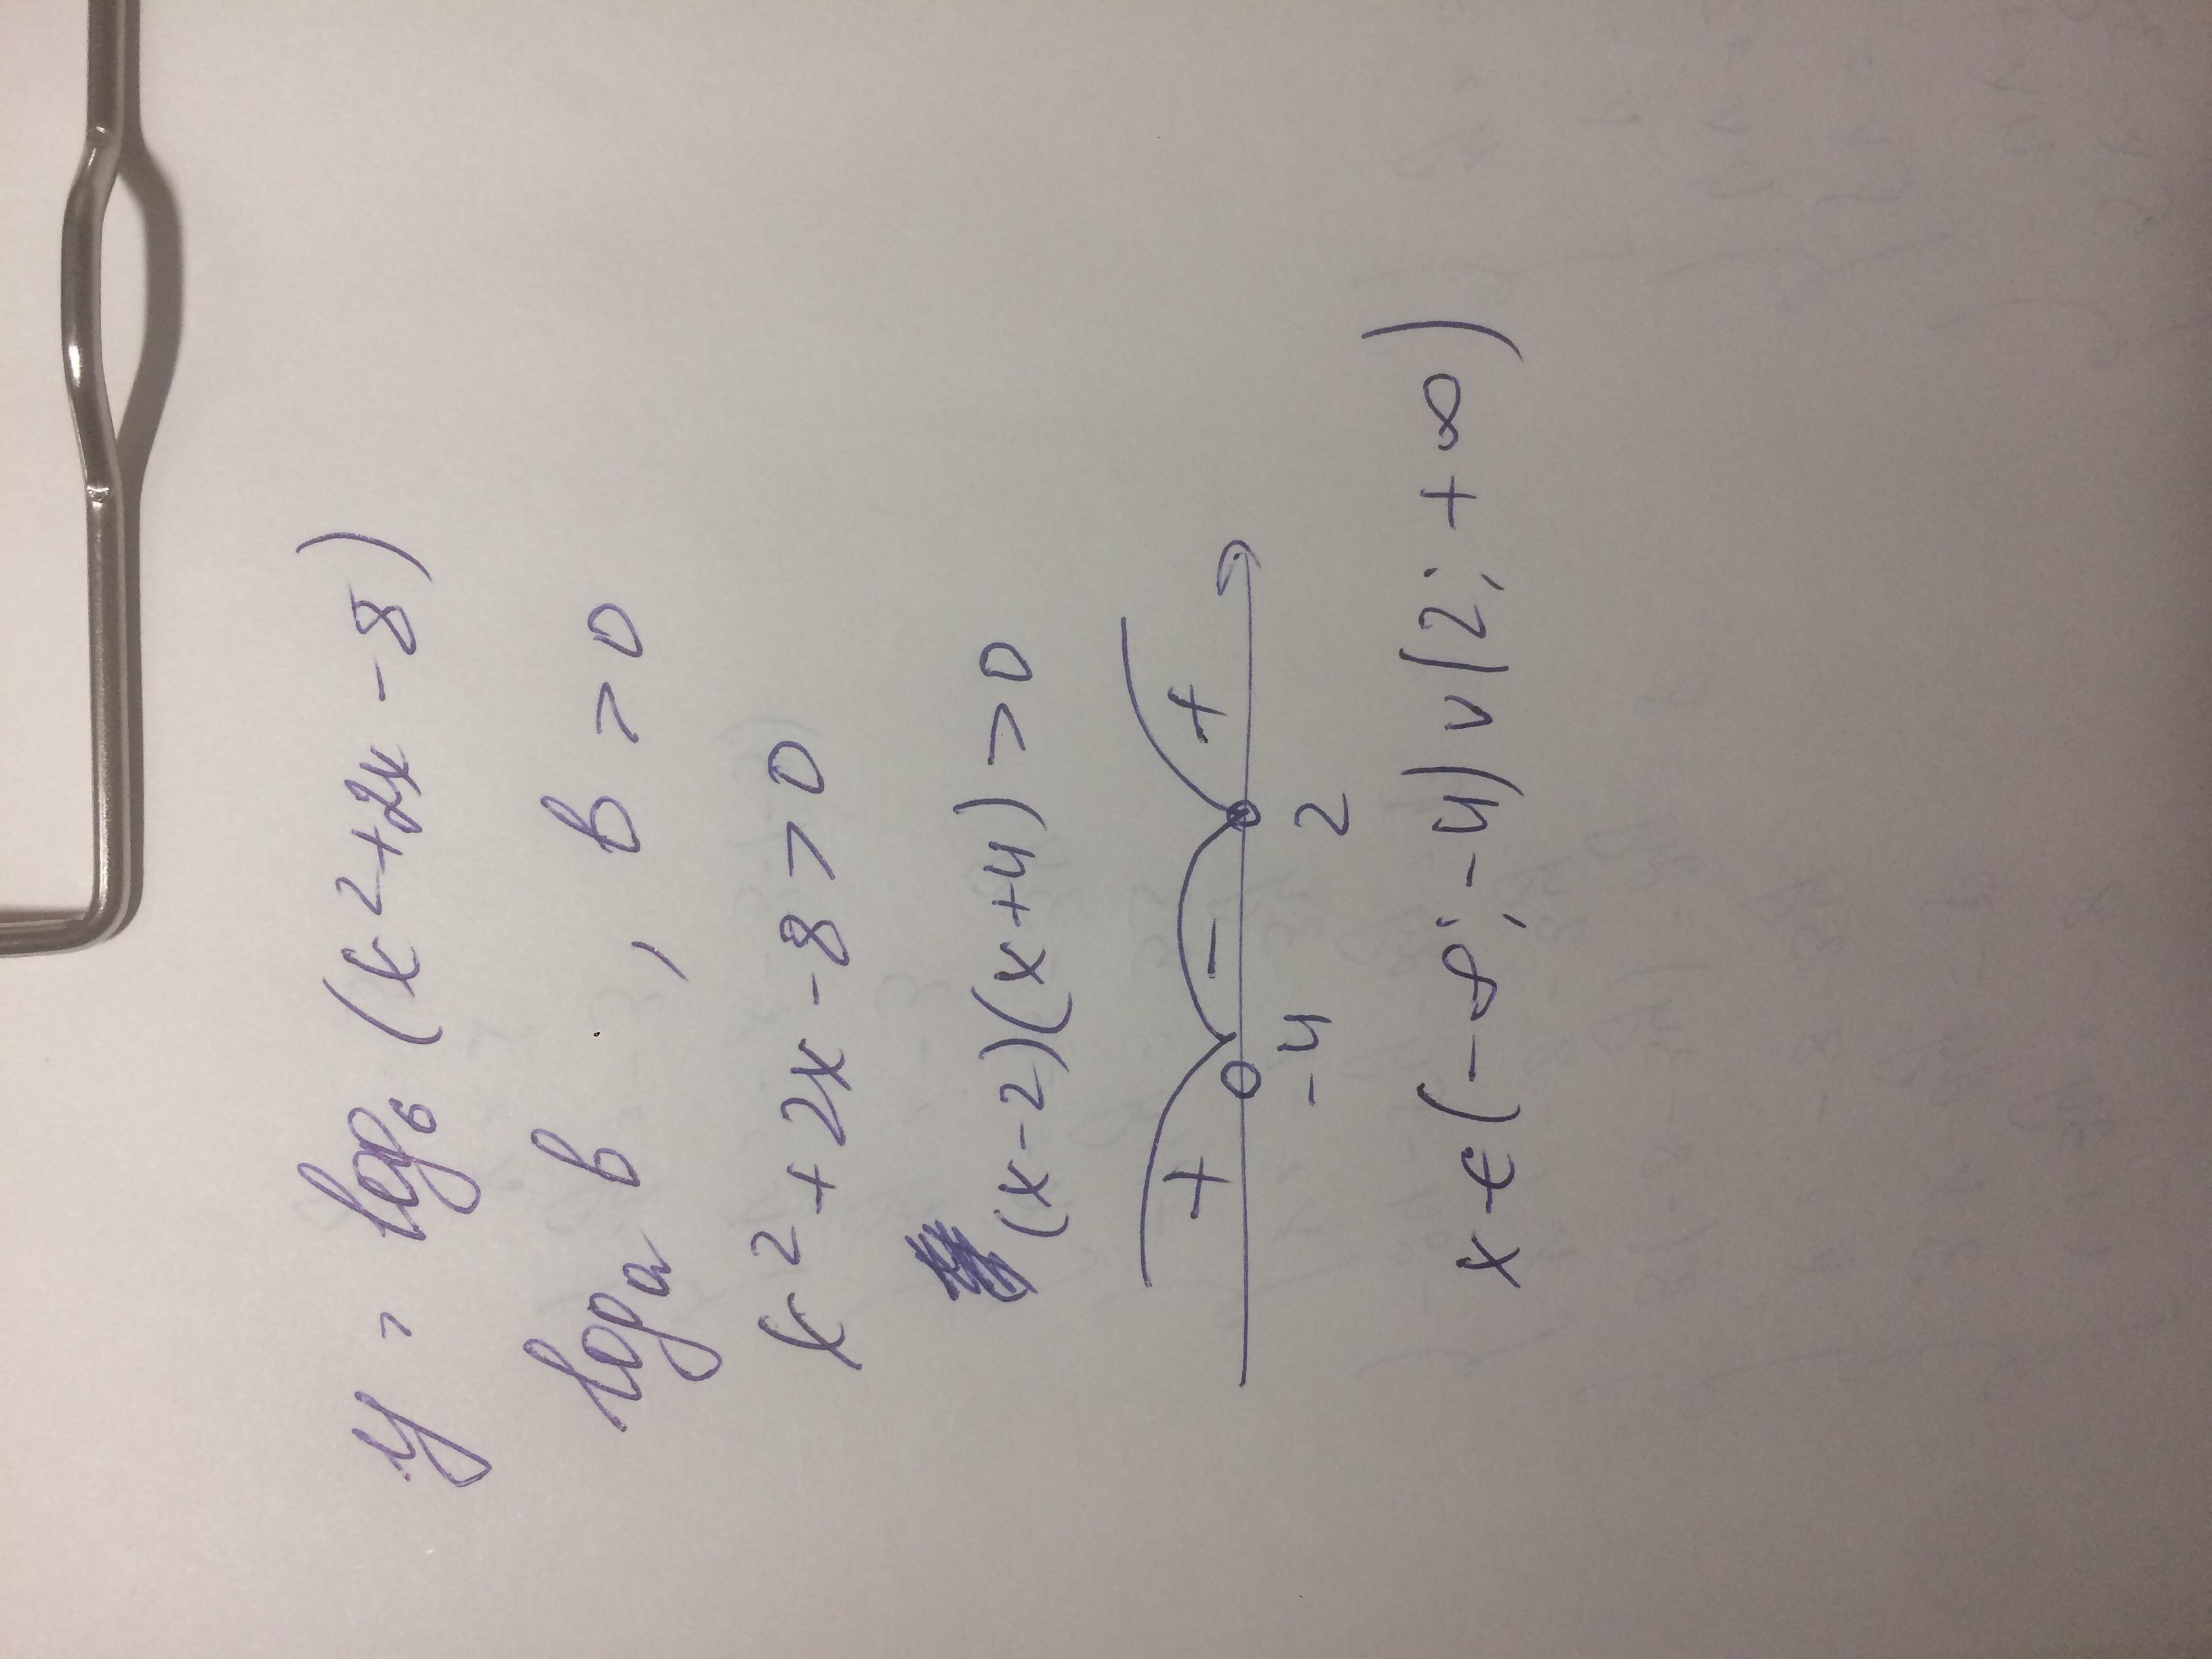 y = log₆ (x² + 2x - 8)
logₐ b , b > 0
x² + 2x - 8 > 0
(x - 2)(x + 4) > 0
+ - +
-4 2
x ∈ (-∞; -4) ∪ (2; +∞)